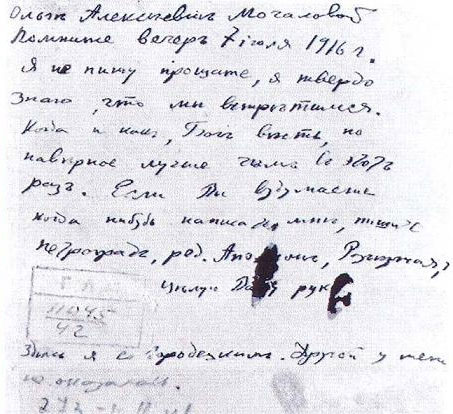 Ольгѣ Алексѣевнѣ Мочаловой
Помните вечеръ 7 iюля 1916 г.
Я не пишу прощайте, я твердо
знаю, что мы встрѣтимся.
Когда и какъ, Богъ вѣсть, но
навѣрное лучше чѣмъ въ этотъ
разъ. Если Вы вздумаете
когда нибудь написать мнѣ, пишите
Петроградъ, ред. Аполлонъ, Разъѣзжая,
цѣлую
Здѣсь я съ Городецкимъ. Другой у меня
не оказалось.